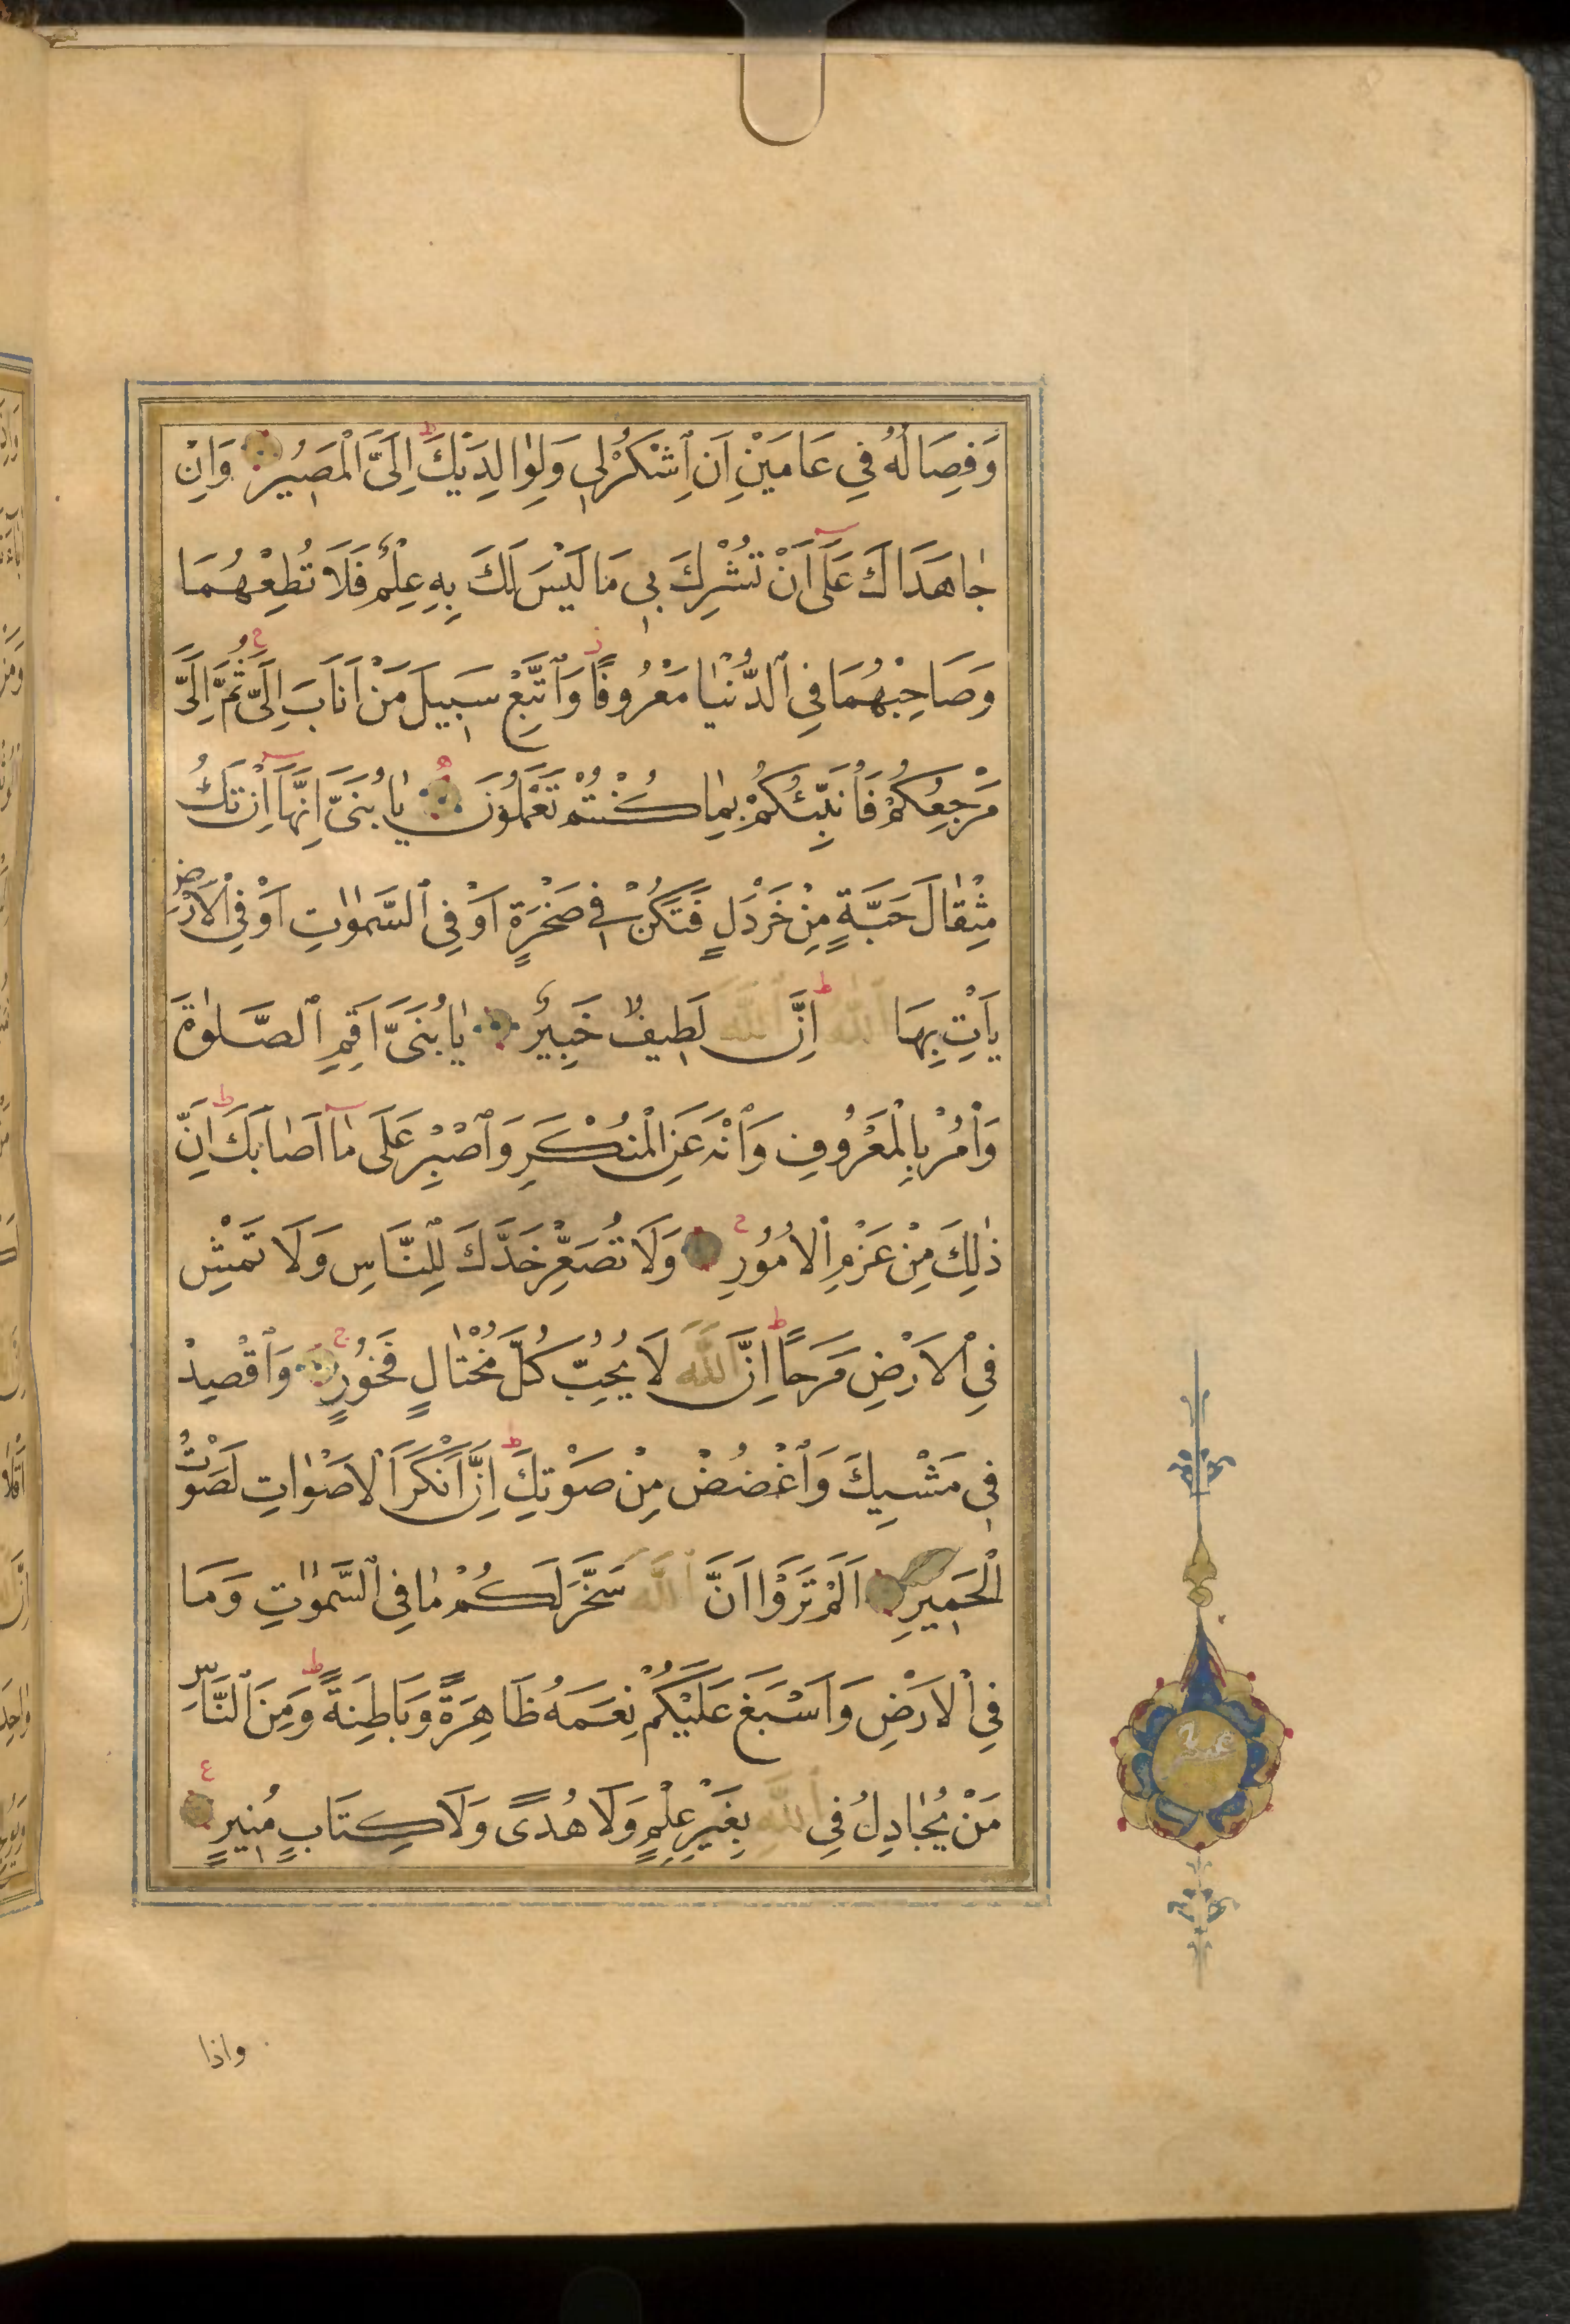 وَفِصَالُهُ فِي عَامَيْنِ اَنِ ٱشْكُرْلِي وَلِوٰالِدَيْكَ ط اِلَيَّ الْمَصِيرُ وَاِنْ
جٰاهَدَاكَ عَلَىٰٓ اَنْ تُشْرِكَ بِي مَا لَيْسَ لَكَ بِهِ عِلْمٌ فَلَا تُطِعْهُمَا
وَصَاحِبْهُمَا فِي ٱلدُّنْيٰا مَعْرُوفًا ز وَٱتَّبِعْ سَبِيلَ مَنْ اَنَابَ اِلَيَّ ج ثُمَّ اِلَيَّ
مَرْجِعُكُمْ فَاُنَبِّئُكُمْ بِمٰا كُنْتُمْ تَعْمَلُونَ ه يٰابُنَيَّ اِنَّهَآ اِنْ تَكُ
مِثْقٰالَ حَبَّةٍ مِنْ خَرْدَلٍ فَتَكُنْ فِي صَخْرَةٍ اَوْ فِي ٱلسَّمٰوٰتِ اَوْ فِي الْاَرْضِ
يَاْتِ بِهَا ٱللّٰهُ ط اِنَّ ٱللّٰهَ لَطِيفٌ خَبِيرٌ يٰابُنَيَّ اَقِمِ ٱلصَّلٰوةَ
وَاْمُرْ بِالْمَعْرُوفِ وَٱنْهَ عَنِ الْمُنْكَرِ وَٱصْبِرْ عَلَىٰ مٰٓا اَصٰابَكَ ط اِنَّ
ذٰلِكَ مِنْ عَزْمِ الْاُمُورِ ج وَلَا تُصَعِّرْ خَدَّكَ لِلنَّاسِ وَلَا تَمْشِ
فِي الْاَرْضِ مَرَحًا ط اِنَّ ٱللّٰهَ لَا يُحِبُّ كُلَّ مُخْتٰالٍ فَخُورٍ ج وَٱقْصِدْ
فِي مَشْيِكَ وَٱغْضُضْ مِنْ صَوْتِكَ ط اِنَّ اَنْكَرَ الْاَصْوٰاتِ لَصَوْتُ
الْحَمِيرِ اَلَمْ تَرَوْا اَنَّ ٱللّٰهَ سَخَّرَ لَكُمْ مٰا فِي ٱلسَّمٰوٰتِ وَمَا
فِي الْاَرْضِ وَاَسْبَغَ عَلَيْكُمْ نِعَمَهُ ظَاهِرَةً وَبَاطِنَةً ط وَمِنَ ٱلنَّاسِ
مَنْ يُجٰادِلُ فِي ٱللّٰهِ بِغَيْرِ عِلْمٍ وَلَا هُدًى وَلَا كِتَابٍ مُنِيرٍ ع
عشر
واذا